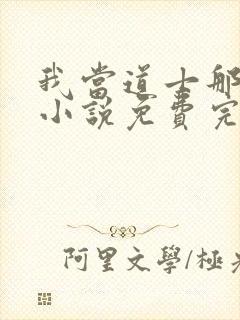 我當道士那
小說免費完
阿里文學/極光